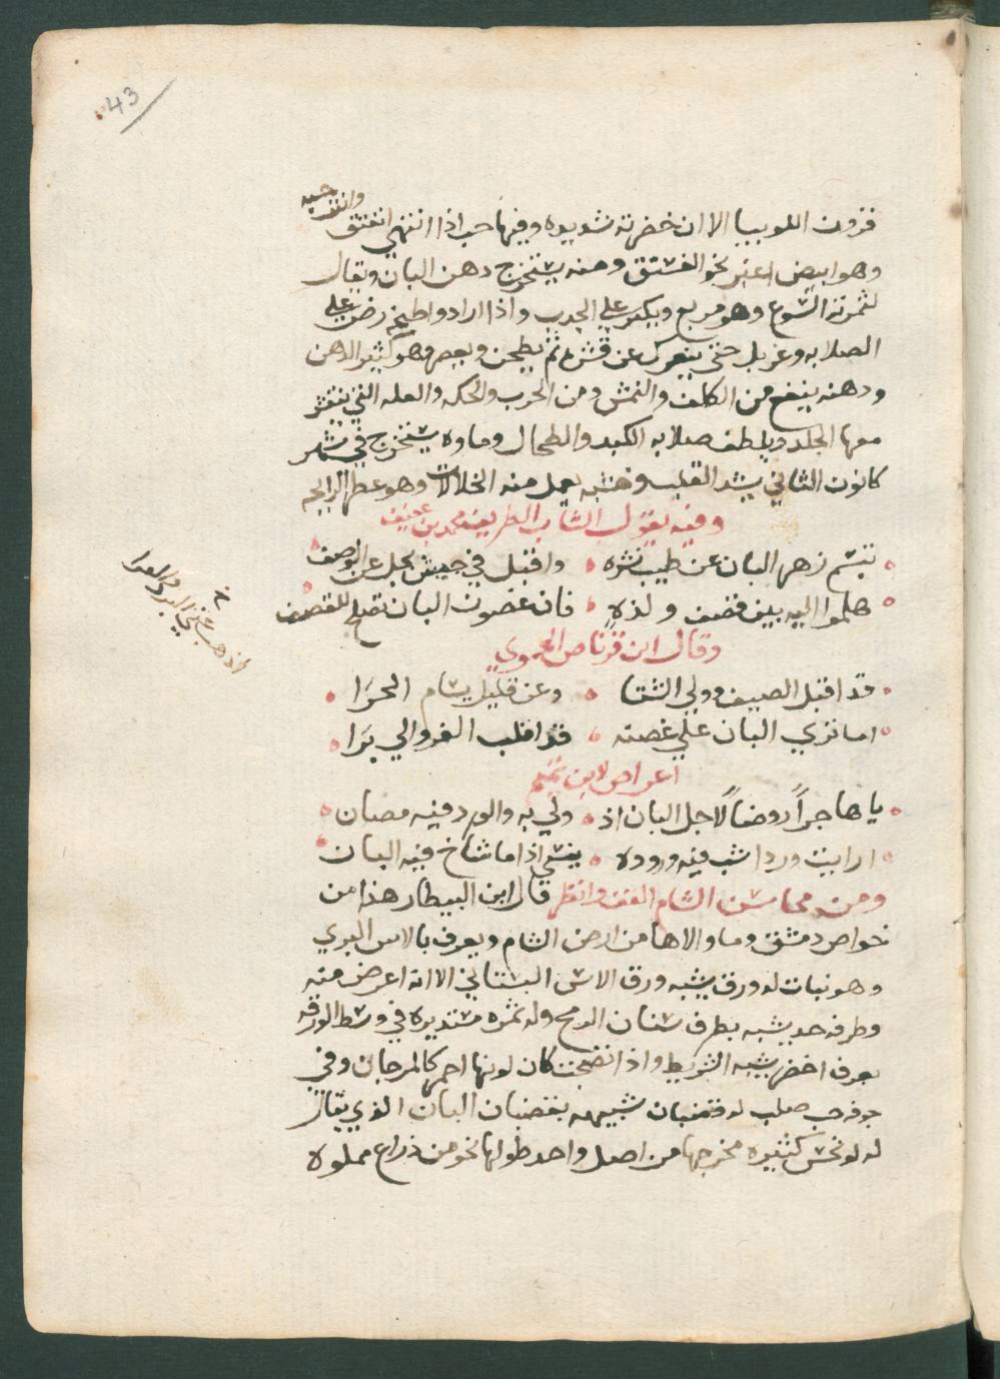 43
قرون اللوبيا الا ان خضرته شديده وفيها حب اذا انتهى انفتق وانتثر حبه
وهو ابيض اغبر نحو الفستق ومنه يستخرج دهن البان ويقال
لثمرته الشوع وهو مربع ويكثر على الجدب واذا ارادوا طبخه رض على
الصلابه وغربل حتى ينعزل عن قشره ثم يطحن ويعصر وهو كثير الدهن
ودهنه ينفع من الكلف والنمش ومن الجرب والحكه والعله التي يتقشر
معها الجلد ويلطف صلابه الكبد والطحال وماوه يستخرج في شهر
كانون الثاني يشد القلب وخشبه يعمل منه الخلالات وهو عطر الرايحه
وفيه يقول الشاب الظريف محمد بن عفيف
تبسم زهر البان عن طيب نشره • واقبل في حسن يجل عن الوصف
هلموا اليه بين قصف ولذه • فان غصون البان تصلح للقصف
وقال ابن قرناص الحموي
قد اقبل الصيف وولى الشتا • وعن قليل يسام الحرا
اما ترى البان على غصنه • قد اقلب الفرو الى برا
اعراض لابن تميم
يا هاجراً روضاً لاجل البان اذ • ولى به والورد فيه مصان
ارايت وردا شب فيه وروده • ينشي اذا ما شاخ فيه البان
ومن محاسن الشام القف وانظر قال ابن البيطار هذا من
خواص دمشق وما والاها من ارض الشام ويعرف بالاس البري
وهو نبات له ورق يشبه ورق الاس البستاني الا انه اعرض منه
وطرفه حد يشبه بطرف سنان الرمح وله ثمره مستديره في وسط الورقه
بعرق اخضر يشبه الشريط واذا نضجت كان لونها احمر كالمرجان وفي
جوفه حب صلب له قضبان شبيهه بقضبان البان الذي يقال
له لوخس كثيره مخرجها من اصل واحد طولها نحو من ذراع مملوه